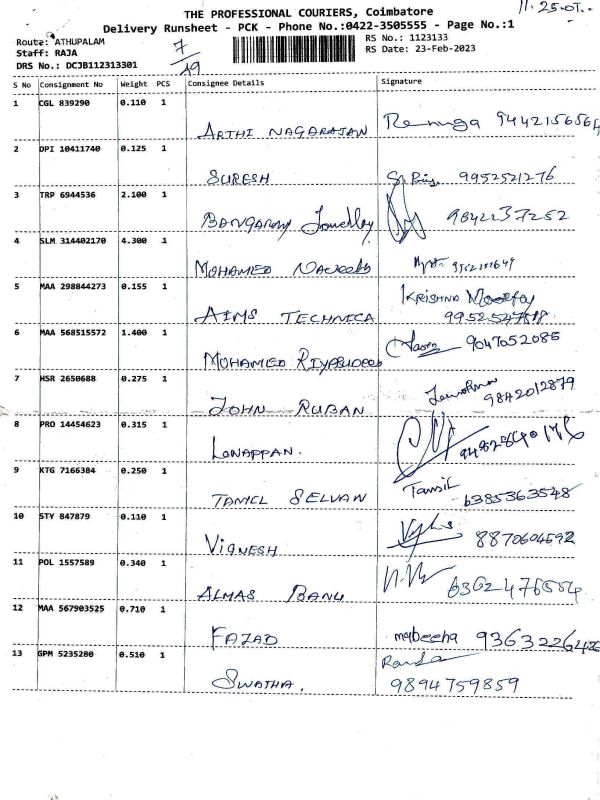 11.25.OT.
THE PROFESSIONAL COURIERS, Coimbatore
Delivery Runsheet - PCK - Phone No.:0422-3505555 - Page No.:1
Route: ATHUPALAM 7/49 RS No.: 1123133
Staff: RAJA RS Date: 23-Feb-2023
DRS No.: DCJB112313301
S No Consignment No Weight PCS Consignee Details Signature
1 CGL 839290 0.110 1
ARTHI NAGARAJAN Renuga 9442156564
2 DPI 10411740 0.125 1
SURESH 9952521276
3 TRP 6944536 2.100 1
BANGARAY Jewellery 9842237252
4 SLM 314402170 4.300 1
MOHAMED
5 MAA 298844273 0.155 1
KRISHNA Moorthy
AIMS TECHNICA
6 MAA 568515572 1.400 1
MOHAMED RIYASUDEEN 9047052085
7 HSR 2650688 0.275 1
JOHN RUBAN 9842012879
8 PRO 14454623 0.315 1
LONAPPAN.
9 KTG 7166384 0.250 1
TAMIL SELVAN Tamsil 6385363548
10 STY 847879 0.110 1
VIGNESH 8870604592
11 POL 1557589 0.340 1
ALMAS BANU
12 MAA 567903525 0.710 1
FAZAD mabeeha
13 GPM 5235280 0.510 1
SWATHA. 9894759859